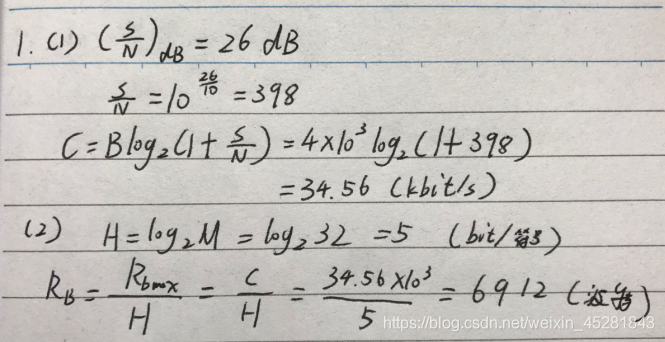 1. (1) (S/N)dB = 26 dB
S/N = 10^(26/10) = 398
C = Blog₂(1 + S/N) = 4×10³ log₂(1 + 398)
= 34.56 (kbit/s)
(2) H = log₂M = log₂32 = 5 (bit/符号)
R_B = R_bmax/H = C/H = 34.56×10³/5 = 6912
https://blog.csdn.net/weixin_45281843